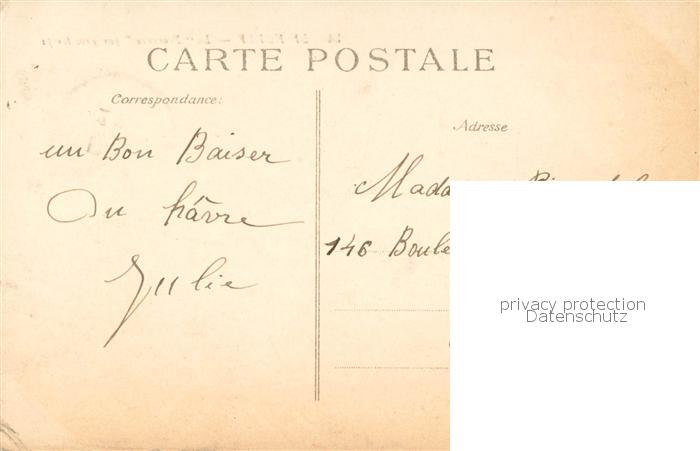 CARTE POSTALE
Correspondance:
un Bon Baiser
Du hâvre
Julie
Adresse
146
privacy protection
Datenschutz